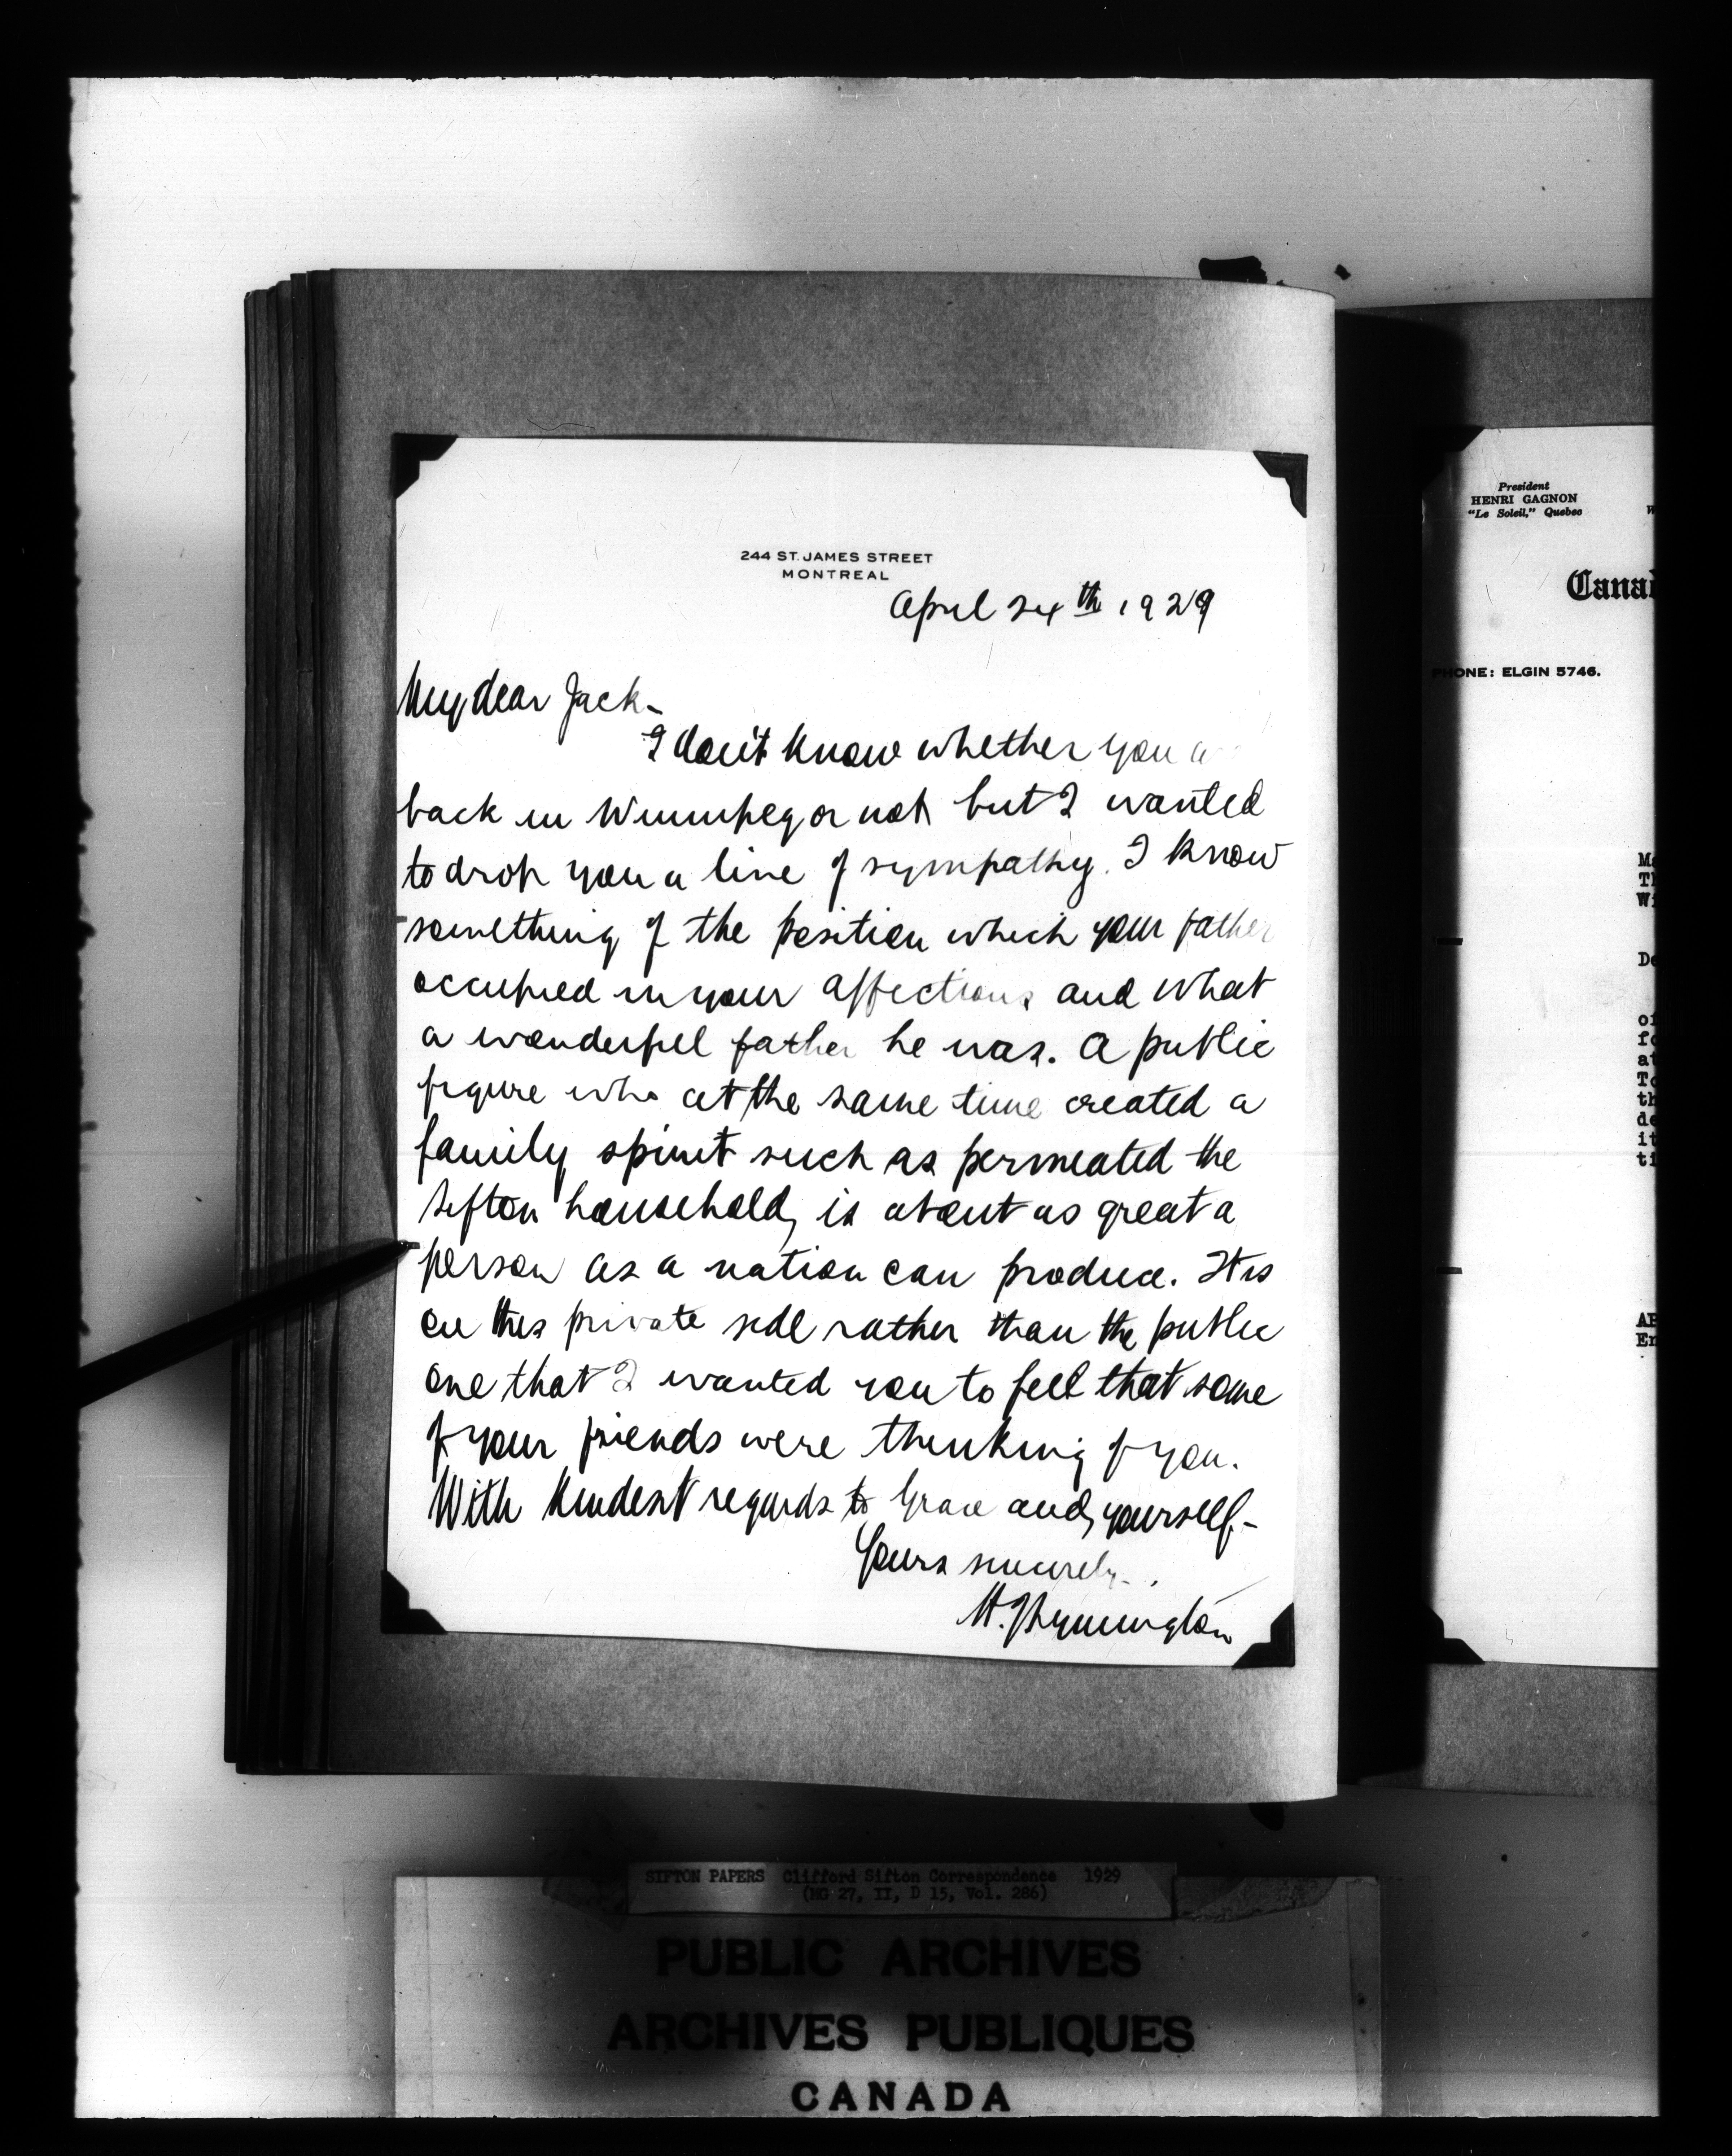 244 ST. JAMES STREET
MONTREAL
April 24th 1929
My dear Jack -
I don't know whether you a
back in Winnipeg or not but I wanted
to drop you a line of sympathy. I know
something of the position which your father
occupied in your affections and what
a wonderful father he was. A public
figure who at the same time created a
family spirit such as permeated the
Sifton household, is about as great a
person as a nation can produce. It is
on this private side rather than the public
one that I wanted you to feel that some
of your friends were thinking of you.
With kindest regards to Grace and yourself -
Yours sincerely
H. J. Symington
President
HENRI GAGNON
"Le Soleil," Quebec
W
Cana
PHONE: ELGIN 5746.
M
T
W
De
of
fo
at
To
th
de
it
ti
AB
En
SIFTON PAPERS Clifford Sifton Correspondence 1929
(MG 27, II, D 15, Vol. 286)
PUBLIC ARCHIVES
ARCHIVES PUBLIQUES
CANADA